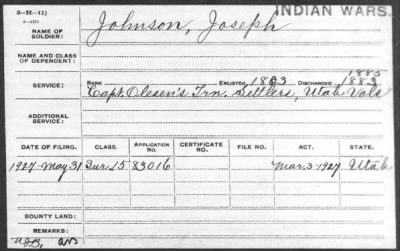 3-H-11)
INDIAN WARS.
NAME OF SOLDIER: Johnson, Joseph
NAME AND CLASS OF DEPENDENT:
1885
SERVICE: RANK ENLISTED 1863 DISCHARGED 1883
Capt. Olesen's Trn. Settlers, Utah Vols
ADDITIONAL SERVICE:
DATE OF FILING. CLASS. APPLICATION NO. CERTIFICATE NO. FILE NO. ACT. STATE.
1927-May 31 Sur 15 83016 Mar. 3-1927 Utah
BOUNTY LAND:
REMARKS: